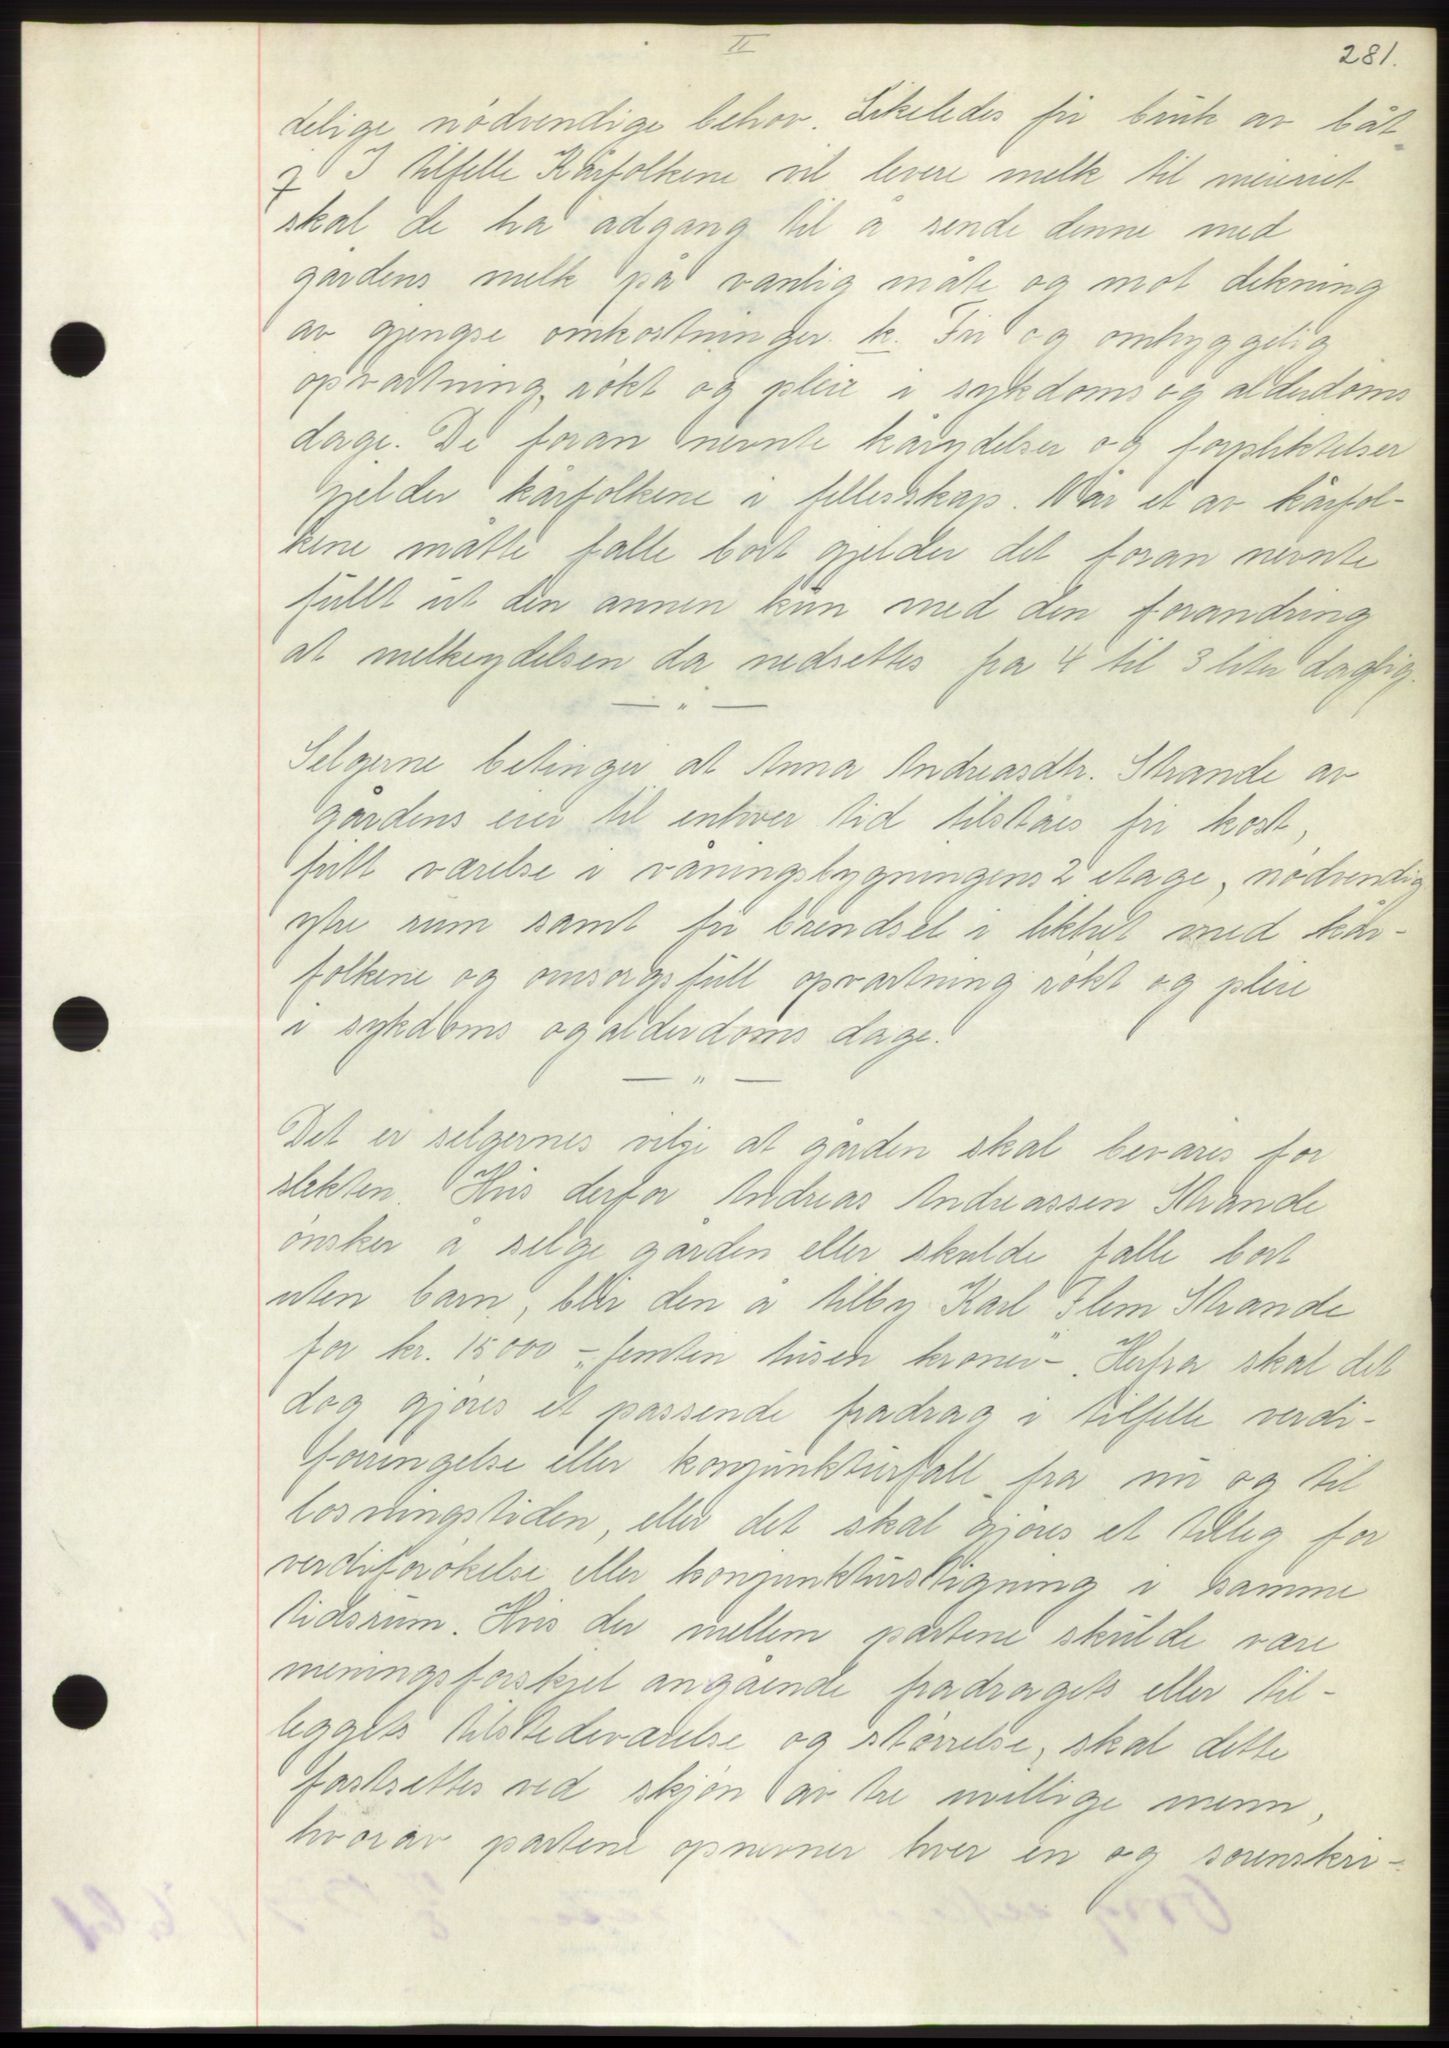 II
281.
delige nödvendige behov. Likeledes fri bruk av båt.
j I tilfelle Kårfolkene vil levere melk til meieriet
skal de ha adgang til å sende denne med
gårdens melk på vanlig måte og mot dekning
av gjengse omkostninger. k. Fri og omhyggelig
opvartning, rökt og pleie i sykdoms og alderdoms
dage. De foran nevnte kårydelser og forpliktelser
gjelder kårfolkene i fellesskap. Når et av kårfol-
kene måtte falle bort gjelder det foran nevnte
fullt ut den annen kun med den forandring
at melkeydelsen da nedsettes fra 4 til 3 liter daglig.
— " —
Selgerne betinger at Anna Andreasdtr. Strande av
gårdens eier til enhver tid tilståes fri kost,
fritt værelse i våningsbygningens 2 etage, nödvendig
ytre rum samt fri brendsel i likhet med kår-
folkene og omsorgsfull opvartning rökt og pleie
i sykdoms og alderdoms dage.
— " —
Det er selgernes vilje at gården skal bevares for
slekten. Hvis derfor Andreas Andreassen Strande
önsker å selge gården eller skulde falle bort
uten barn, blir den å tilby Karl Flem Strande
for kr. 15000 -„femten tusen kroner"-. Herfra skal det
dog gjöres et passende fradrag i tilfelle verdi-
forringelse eller konjunkturfall fra nu og til
losningstiden, eller det skal gjöres et tilleg for
verdiforökelse eller konjunkturstigning i samme
tidsrum. Hvis der mellem partene skulde være
meningsforskjel angående fradragets eller til-
leggets tilstedeværelse og störrelse, skal dette
fastsettes ved skjön av tre uvillige menn,
hvorav partene opnevner hver en og sorenskri-